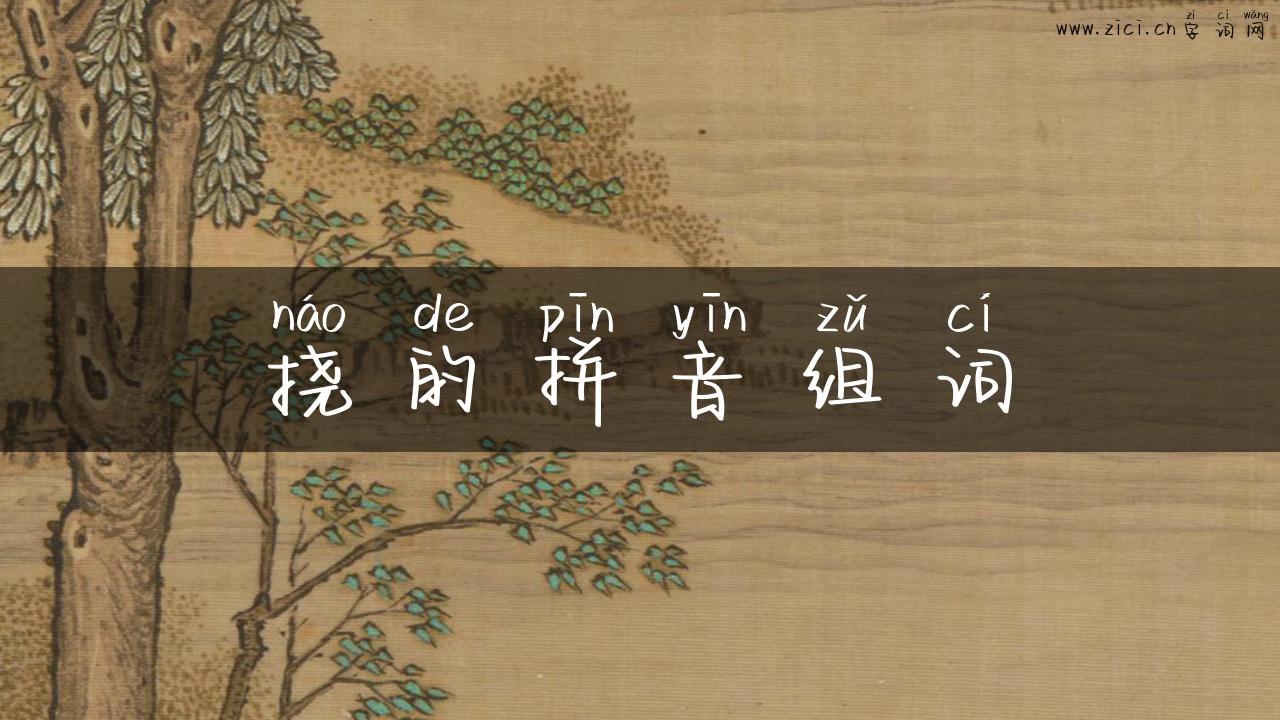 zì cí wǎng
www.zici.cn字词网
náo de pīn yīn zǔ cí
挠的拼音组词